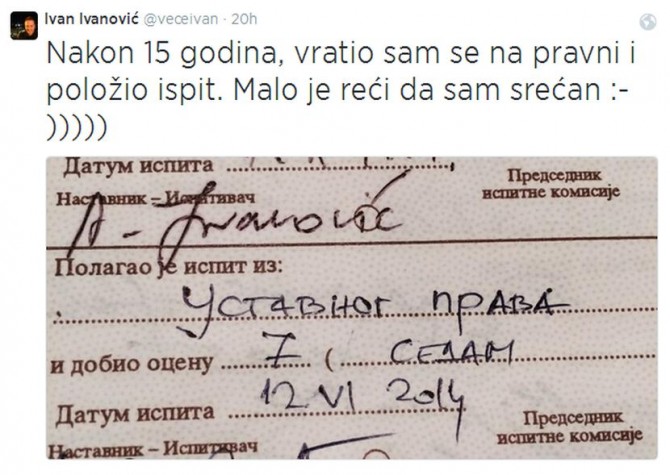 Ivan Ivanović @veceivan · 20h
Nakon 15 godina, vratio sam se na pravni i
položio ispit. Malo je reći da sam srećan :-
)))))
Датум испита
Председник
Наставник – Испитивач
испитне комисије
A - Ivanović
Полагао је испит из:
Уставног права
и добио оцену 7 ( седам
12 VI 2014
Датум испита
Председник
испитне комисије
Наставник – Испитивач